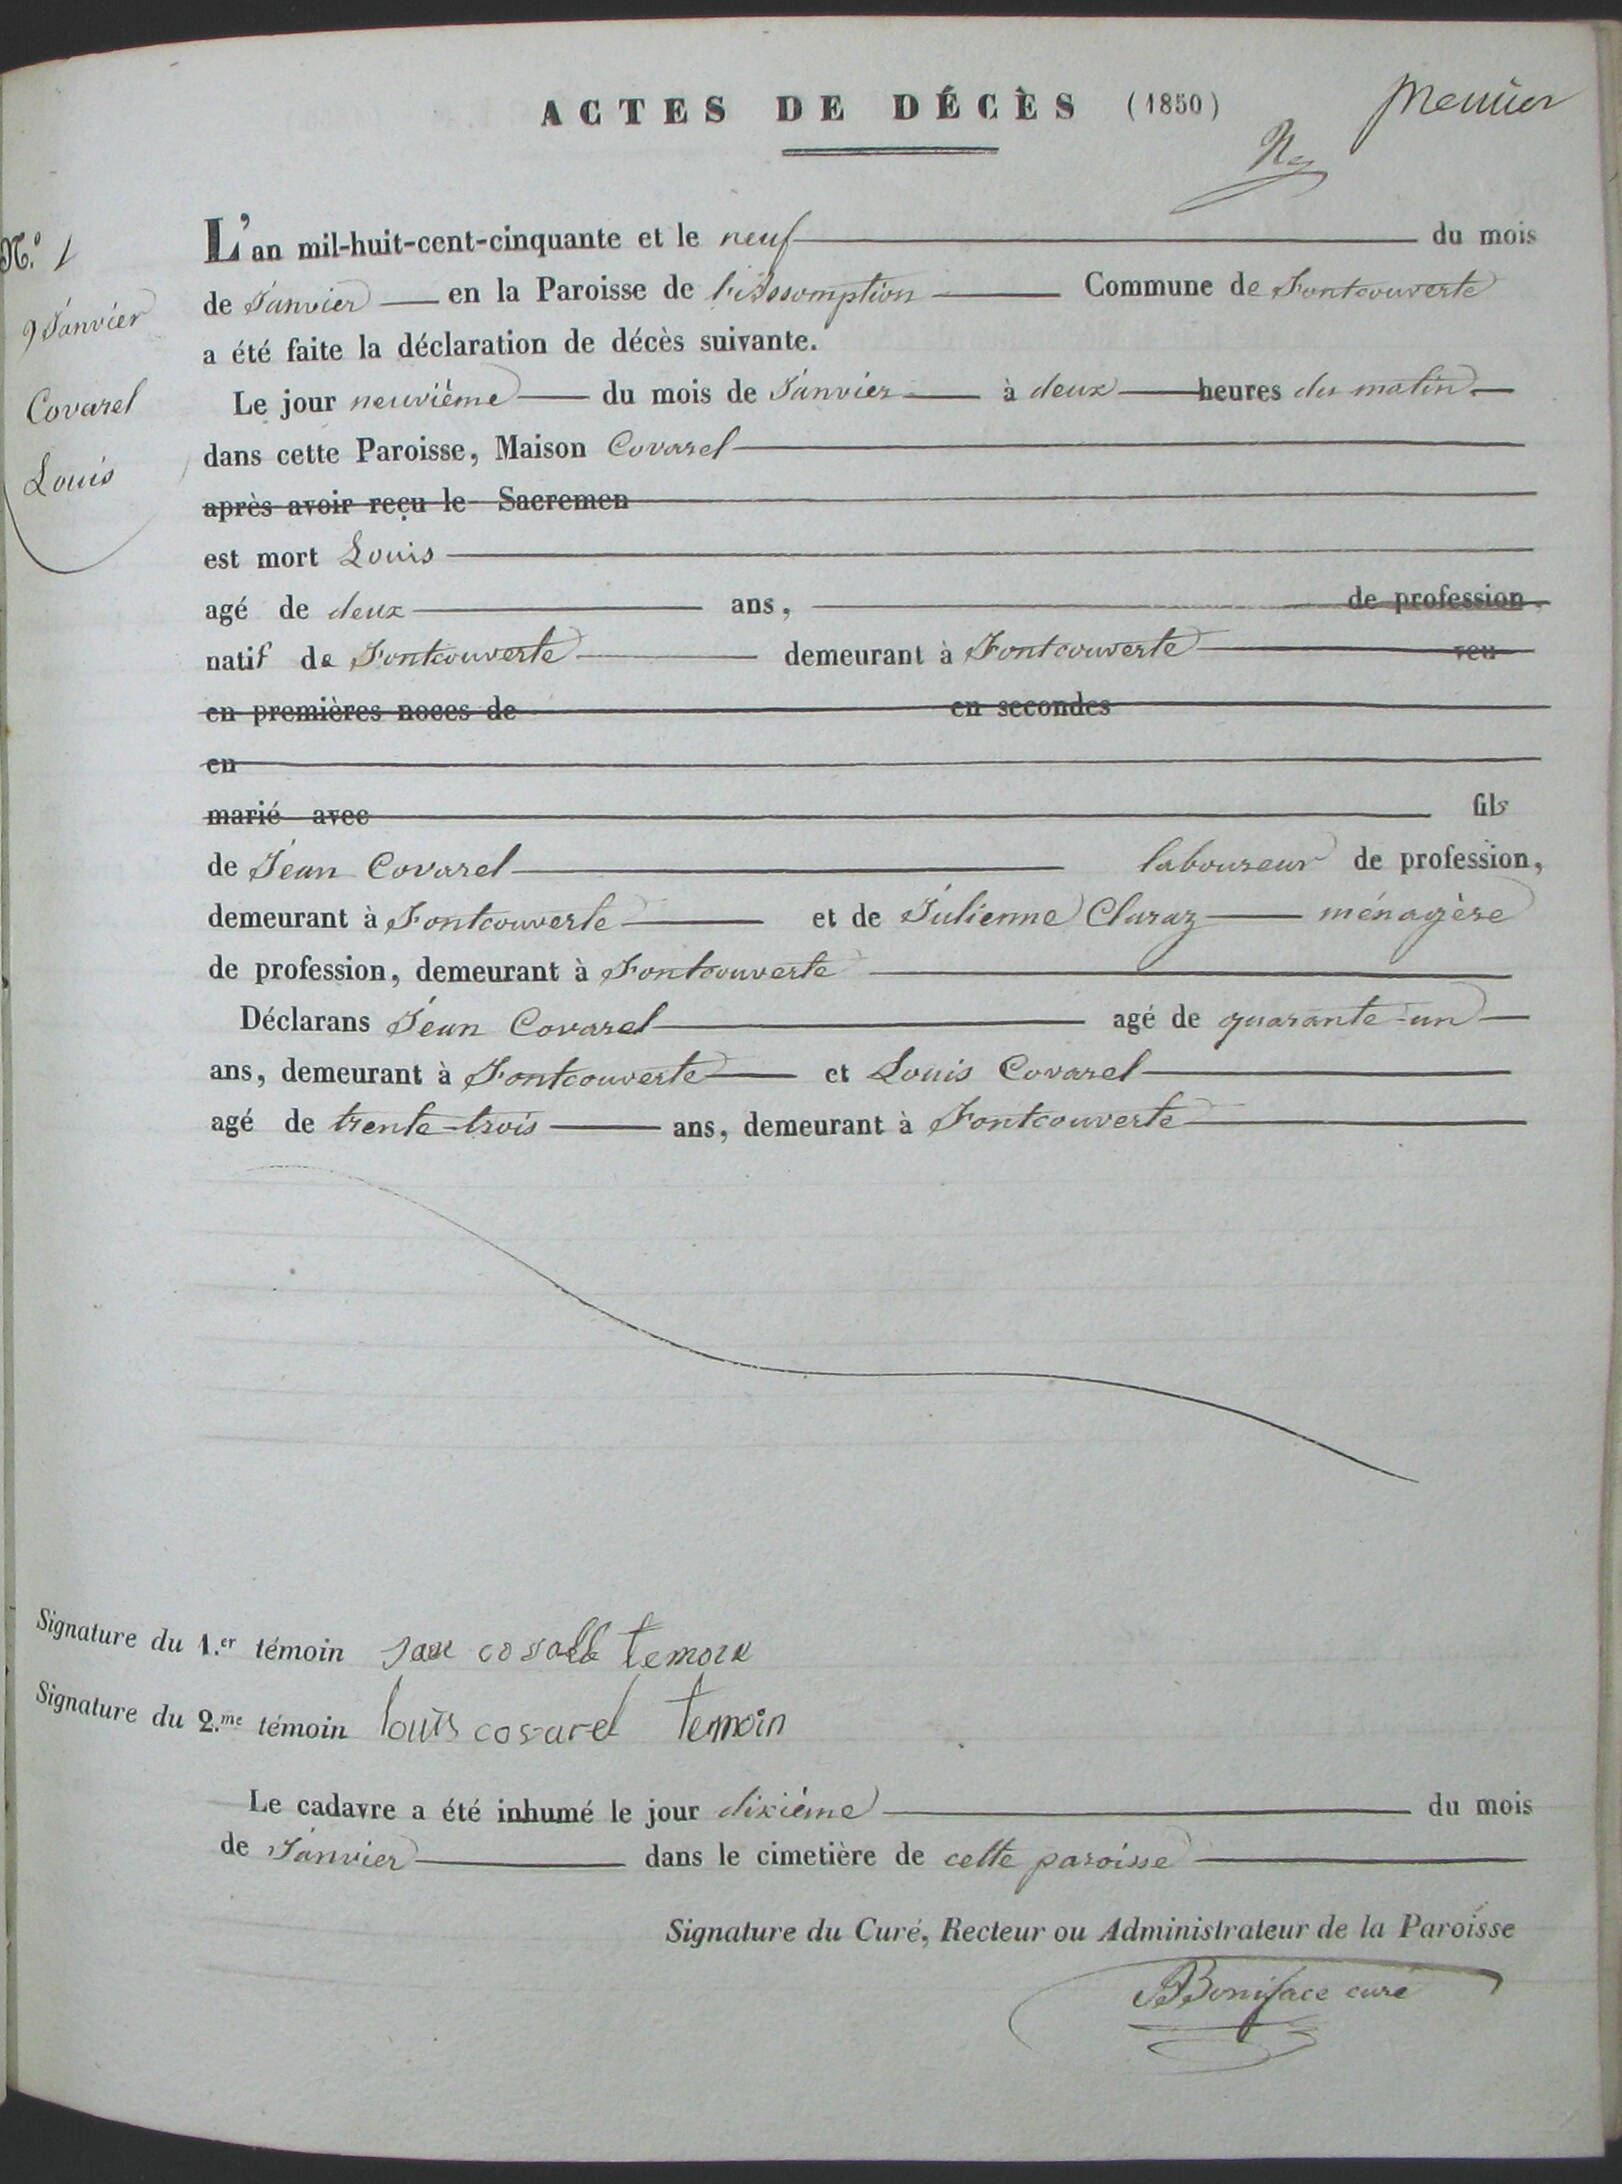 ACTES DE DÉCÈS (1850) premier
N.º 1
L'an mil-huit-cent-cinquante et le neuf du mois
de Janvier en la Paroisse de l'Assomption Commune de Fontcouverte
9 Janvier
a été faite la déclaration de décès suivante.
Covarel
Le jour neuvième du mois de Janvier à deux heures du matin.
Louis
dans cette Paroisse, Maison Covarel
après avoir reçu le Sacremen
est mort Louis
agé de deux ans, de profession,
natif de Fontcouverte demeurant à Fontcouverte veu
en premières noces de en secondes
en
marié avec fils
de Jean Covarel laboureur de profession,
demeurant à Fontcouverte et de Julienne Claraz ménagère
de profession, demeurant à Fontcouverte
Déclarans Jean Covarel agé de quarante-un
ans, demeurant à Fontcouverte et Louis Covarel
agé de trente-trois ans, demeurant à Fontcouverte
Signature du 1.er témoin
Signature du 2.me témoin louis covarel temoin
Le cadavre a été inhumé le jour dixième du mois
de Janvier dans le cimetière de cette paroisse
Signature du Curé, Recteur ou Administrateur de la Paroisse
Boniface curé